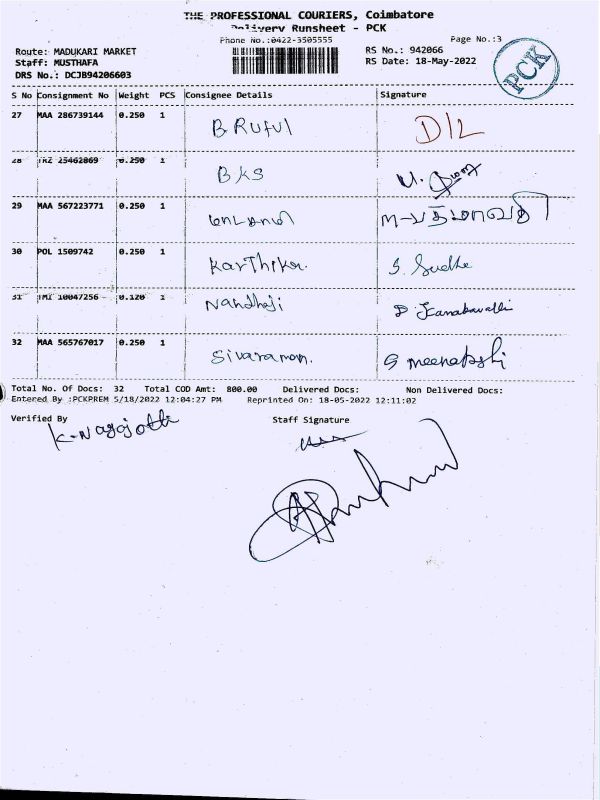 THE PROFESSIONAL COURIERS, Coimbatore
Delivery Runsheet - PCK
Phone No.:0422-3505555
Page No.:3
Route: MADUKARI MARKET
RS No.: 942066
Staff: MUSTHAFA
RS Date: 18-May-2022
DRS No.: DCJB94206603
PCK
S No Consignment No Weight PCS Consignee Details Signature
27 MAA 286739144 0.250 1 D/L
28 TRZ 25462869 0.250 1 BKS
29 MAA 567223771 0.250 1
30 POL 1509742 0.250 1 Karthika. S. Sudha
31 TMI 10047256 0.120 1 Nandhaji P. Kanakavalli
32 MAA 565767017 0.250 1 Sivaraman. S meenakshi
Total No. Of Docs: 32 Total COD Amt: 800.00 Delivered Docs: Non Delivered Docs:
Entered By :PCKPREM 5/18/2022 12:04:27 PM Reprinted On: 18-05-2022 12:11:02
Verified By Staff Signature
K-Nagajothi